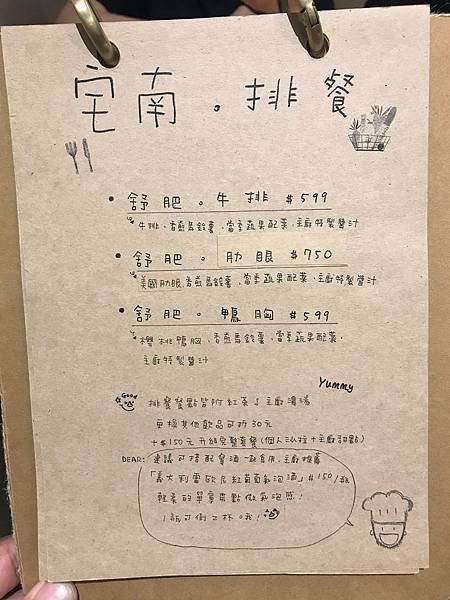 宅南。排餐
舒肥。牛排 $599
牛排、香煎馬鈴薯、當季蔬果配菜、主廚特製醬汁
舒肥。肋眼 $750
美國肋眼、香煎馬鈴薯、當季蔬果配菜、主廚特製醬汁
舒肥。鴨胸 $599
櫻桃鴨胸、香煎馬鈴薯、當季蔬果配菜、
主廚特製醬汁
Yummy
Good
排餐餐點皆附紅茶、主廚濃湯
更換其他飲品可折30元
+$150元升級完整套餐(個人沙拉+主廚甜點)
DEAR:
建議可搭配餐酒一起食用,主廚推薦
「義大利雷歐尼紅葡萄氣泡酒」$150/瓶
輕柔的單寧帶點微氣泡感!
1瓶可倒2杯。哦!